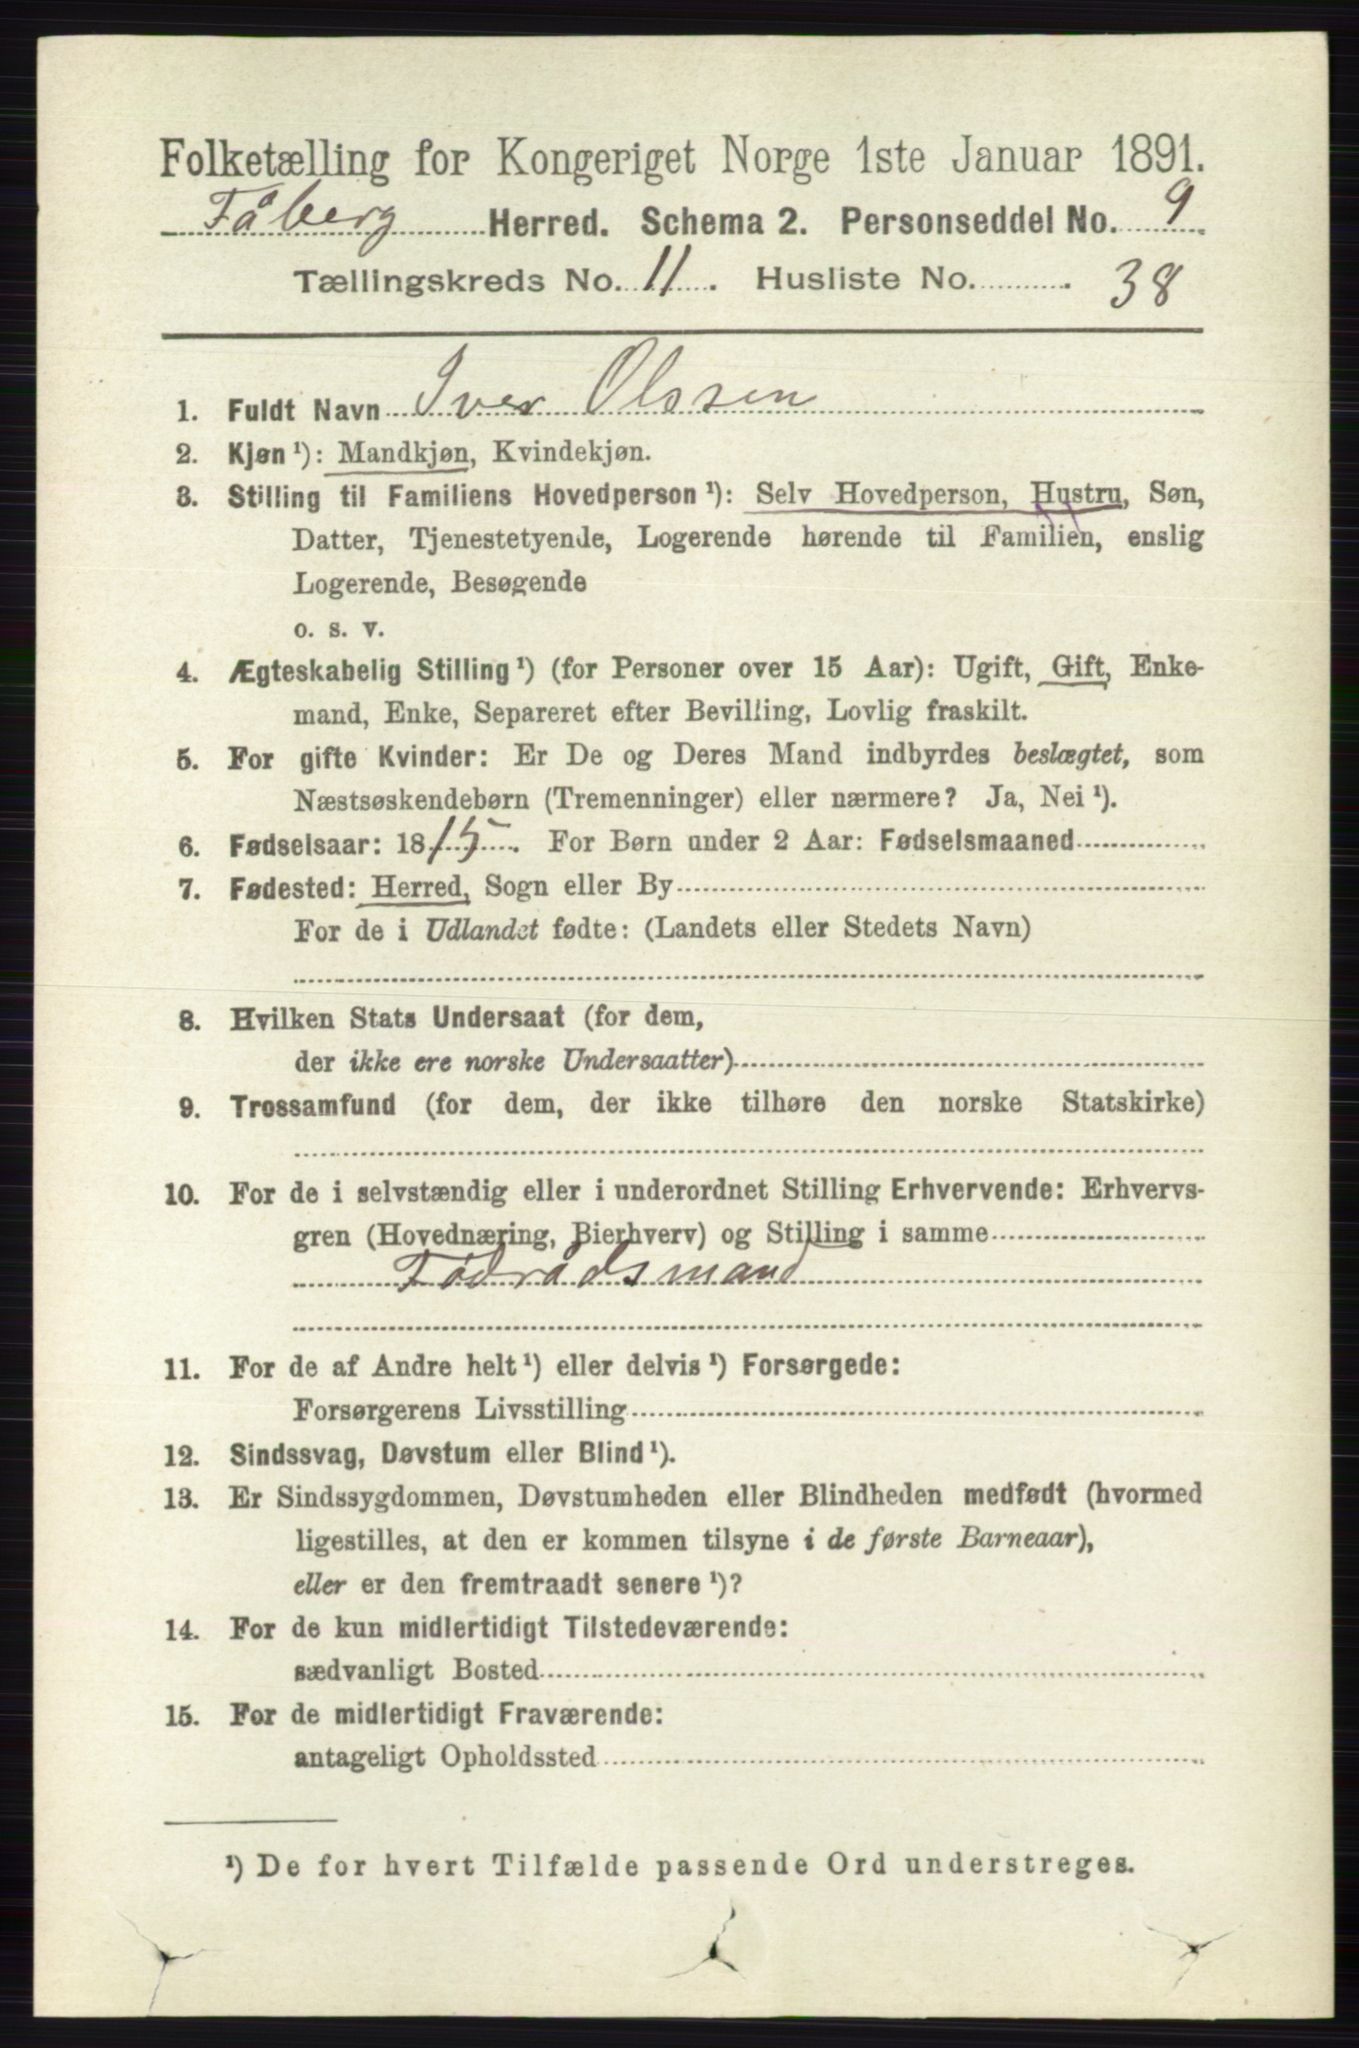 Folketælling for Kongeriget Norge 1ste Januar 1891.
Fåberg Herred. Schema 2. Personseddel No. 9
Tællingskreds No. 11. Husliste No. 38
1. Fuldt Navn Iver Olssen
2. Kjøn ¹): Mandkjøn, Kvindekjøn.
3. Stilling til Familiens Hovedperson ¹): Selv Hovedperson, Hustru, Søn,
Datter, Tjenestetyende, Logerende hørende til Familien, enslig
Logerende, Besøgende
o. s. v.
4. Ægteskabelig Stilling ¹) (for Personer over 15 Aar): Ugift, Gift, Enke-
mand, Enke, Separeret efter Bevilling, Lovlig fraskilt.
5. For gifte Kvinder: Er De og Deres Mand indbyrdes beslægtet, som
Næstsøskendebørn (Tremenninger) eller nærmere? Ja, Nei ¹).
6. Fødselsaar: 1815. For Børn under 2 Aar: Fødselsmaaned
7. Fødested: Herred, Sogn eller By
For de i Udlandet fødte: (Landets eller Stedets Navn)
8. Hvilken Stats Undersaat (for dem,
der ikke ere norske Undersaatter)
9. Trossamfund (for dem, der ikke tilhøre den norske Statskirke)
10. For de i selvstændig eller i underordnet Stilling Erhvervende: Erhvervs-
gren (Hovednæring, Bierhverv) og Stilling i samme
Födrådsmand
11. For de af Andre helt ¹) eller delvis ¹) Forsørgede:
Forsørgerens Livsstilling
12. Sindssvag, Døvstum eller Blind ¹).
13. Er Sindssygdommen, Døvstumheden eller Blindheden medfødt (hvormed
ligestilles, at den er kommen tilsyne i de første Barneaar),
eller er den fremtraadt senere ¹)?
14. For de kun midlertidigt Tilstedeværende:
sædvanligt Bosted
15. For de midlertidigt Fraværende:
antageligt Opholdssted
¹) De for hvert Tilfælde passende Ord understreges.